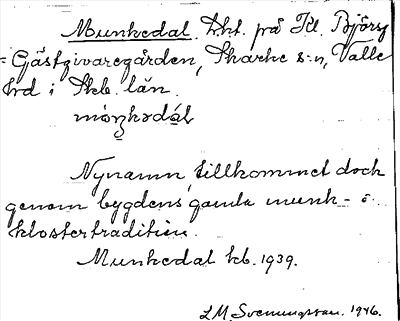 Munkedal. trkt. på Kl. Björsg
= Gästgivaregården, Skarke s:n, Valle
hrd i Skb. län.
Nynamn, tillkommet dock
genom bygdens gamla munk- o
klostertradition.
Munkedal kb. 1939.
L M. Svenungsson. 1946.